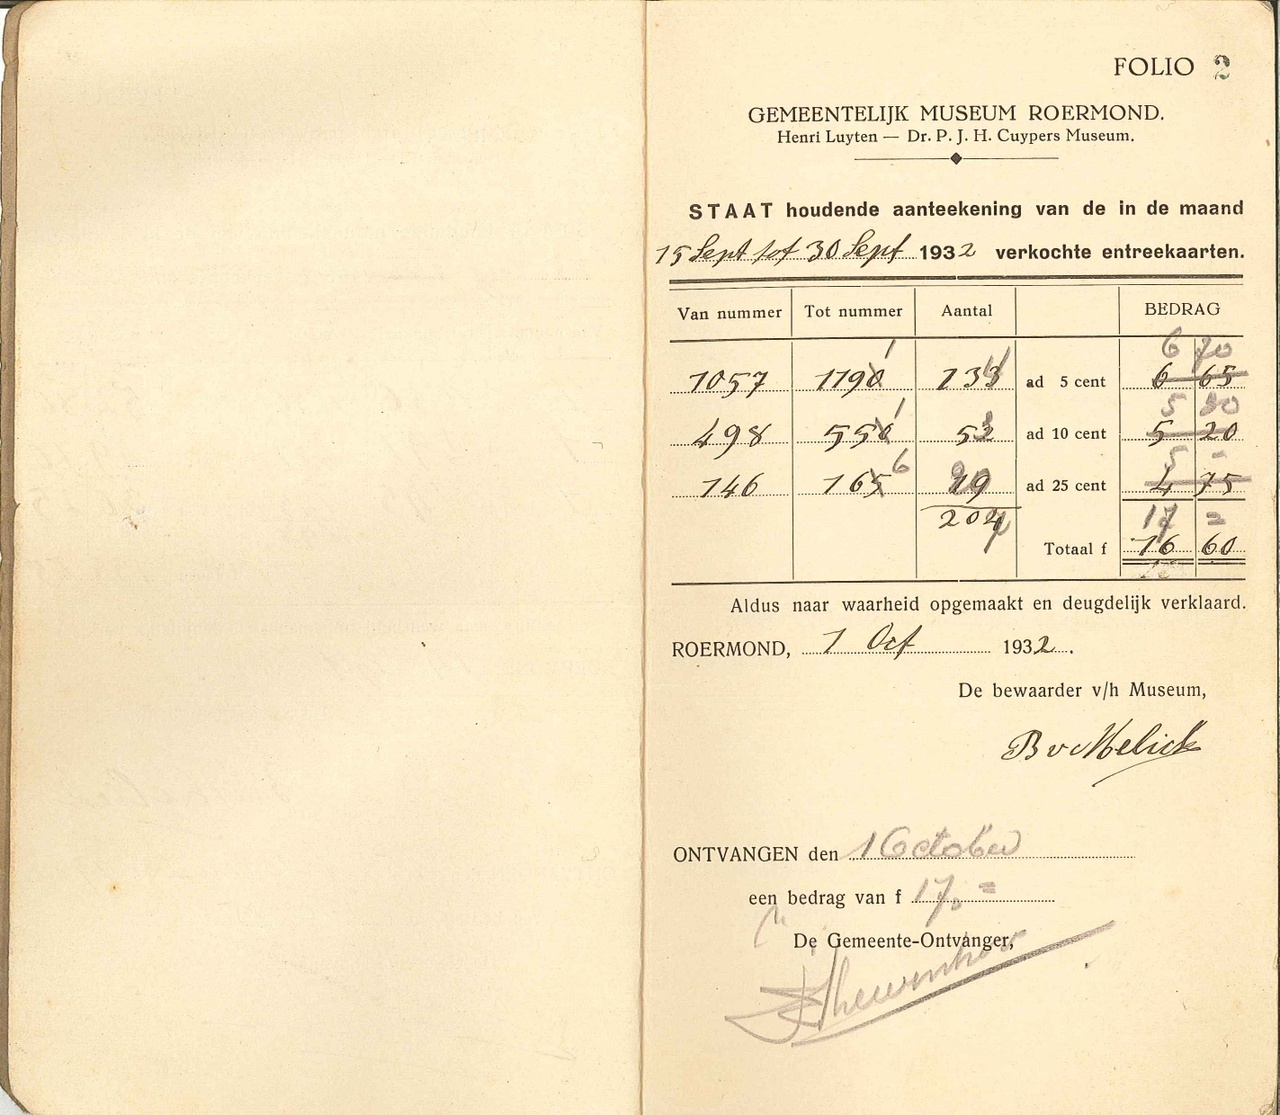 FOLIO 2
GEMEENTELIJK MUSEUM ROERMOND.
Henri Luyten — Dr. P. J. H. Cuypers Museum.
STAAT houdende aanteekening van de in de maand
15 Sept tot 30 Sept 1932 verkochte entreekaarten.
Van nummer Tot nummer Aantal BEDRAG
6 70
1057 1190 1 133 4 ad 5 cent 6 65
5 30
498 550 1 52 3 ad 10 cent 5 20
5 -
146 165 6 19 20 ad 25 cent 4 75
204 7 17 =
Totaal f 16 60
Aldus naar waarheid opgemaakt en deugdelijk verklaard.
ROERMOND, 1 Oct 1932.
De bewaarder v/h Museum,
B v Melick
ONTVANGEN den 1 October
een bedrag van f 17,=
De Gemeente-Ontvanger,